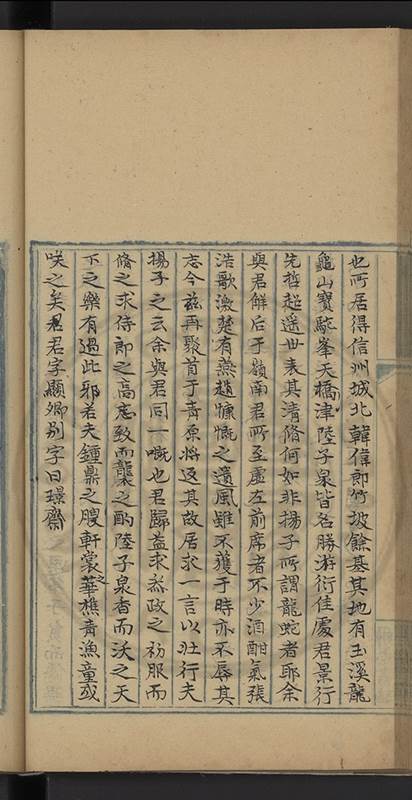 也所居得信州城北韓侍郎竹坡餘基其地有玉溪龍
龜山寶駝峯天橋津陸子泉皆名勝游衍佳處君景行
先哲超遥世表其清脩何如非揚子所謂龍蛇者耶余
與君解后于嶺南君所至虛左前席者不少酒酣氣張
浩歌激楚有燕趙慷慨之遺風雖不獲于時亦不辱其
志今茲再聚首于青原将返其故居求一言以壮行夫
揚子之云余與君同一嘅也君歸益求叅政之初服而
脩之求侍郎之高志致而襲之酌陸子泉者而沃之天
下之樂有過此邪若夫鍾鼎之腴軒裳之華樵青漁童或
咲之矣君字顯卿别字曰璟齋